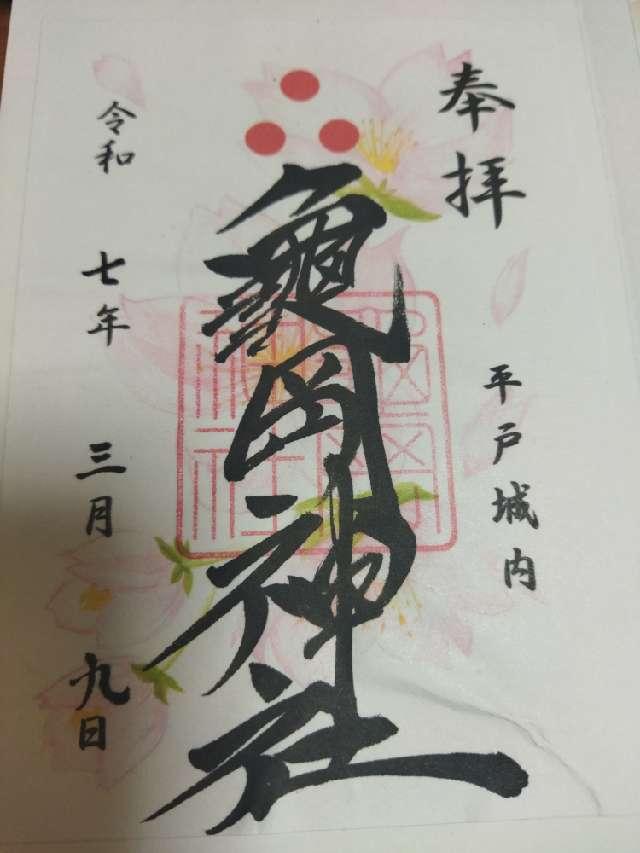 奉拝
平戸城内
龜岡神社
令和 七年 三月 九日